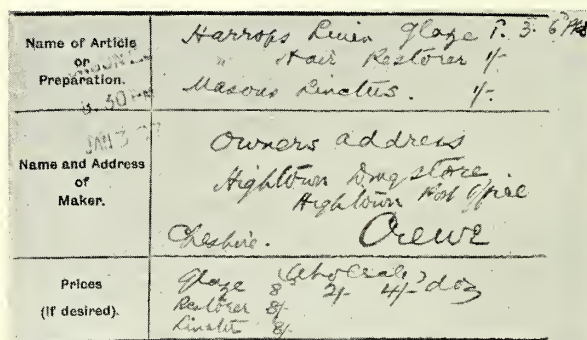 Name of Article
or
Preparation.
Harrops Linen Glaze 1. 3. 6
" Hair Restorer 1/-
Masons Linctus. 1/-
30 PM
JAN 3
Name and Address
of
Maker.
Owners address
Hightown Drug store
Hightown Post Office
Cheshire. Crewe
Prices
(if desired).
Glaze 8 2/- 4/- doz
Restorer 8/-
Linctus 8/-